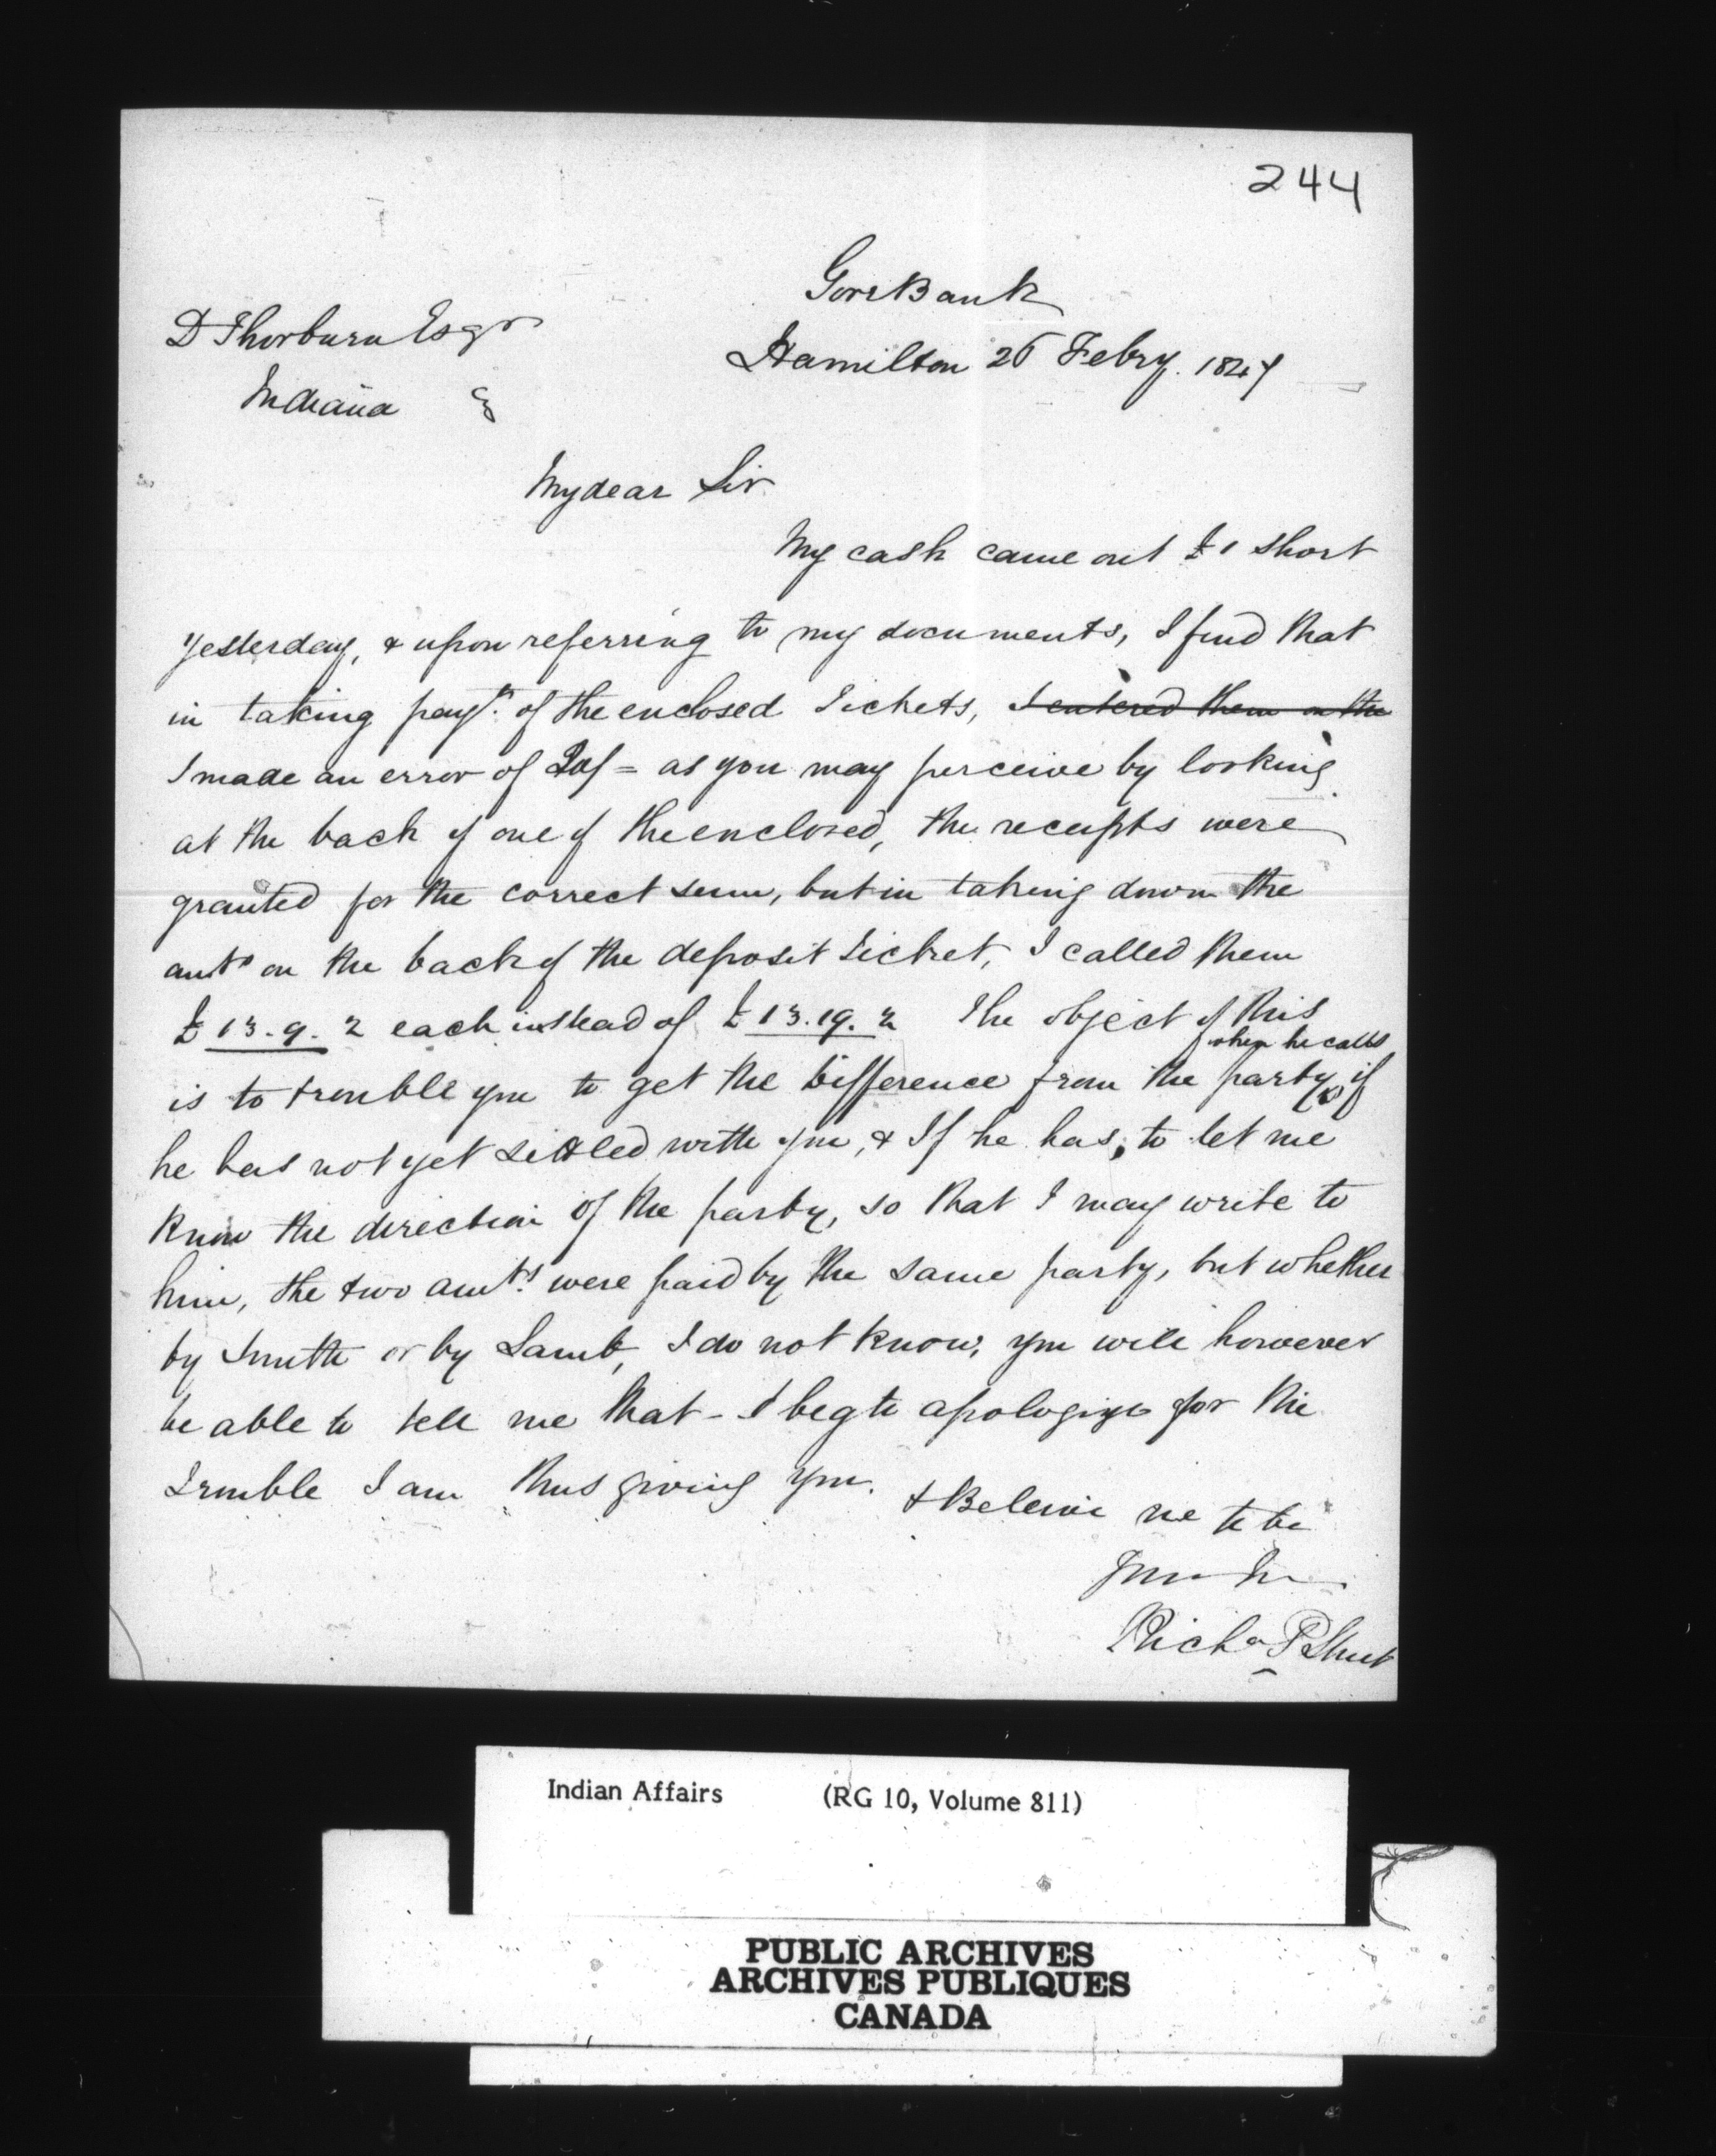 244
Gore Bank
D Thorburn Esqr
Hamilton 26 Febry. 1847
Indiana
My dear Sir
My cash came out £1 short
yesterday, & upon referring to my documents, I find that
in taking paymt. of the enclosed Tickets, I entered them on the
I made an error of 20/= as you may perceive by looking
at the back of one of the enclosed, the receipts were
granted for the correct sum, but in taking down the
amts on the back of the deposit ticket, I called them
£13.9.2 each instead of £13.19.2 The object of this
when he calls
is to trouble you to get the difference from the party, if
he has not yet settled with you, & If he has, to let me
know the direction of the party, so that I may write to
him, the two amts. were paid by the same party, but whether
by Smith or by Lamb, I do not know, you will however
be able to tell me that - I beg to apologize for the
trouble I am thus giving you. & Beleive me to be
Richd P Shut
Indian Affairs (RG 10, Volume 811)
PUBLIC ARCHIVES
ARCHIVES PUBLIQUES
CANADA